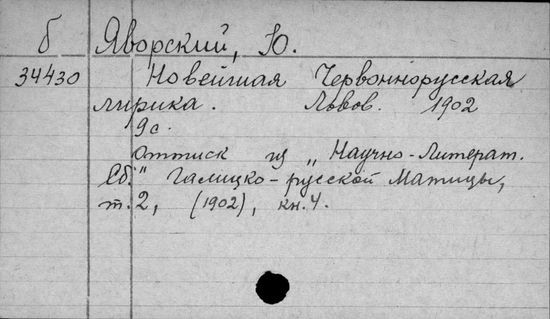 б Яворский, Ю.
34430 Новейшая Червоннорусская
лирика. Львов. 1902
9с.
Оттиск из „Научно-Литерат.
Сб.“ Галицко-русской Матицы,
т. 2, (1902), кн. 4.